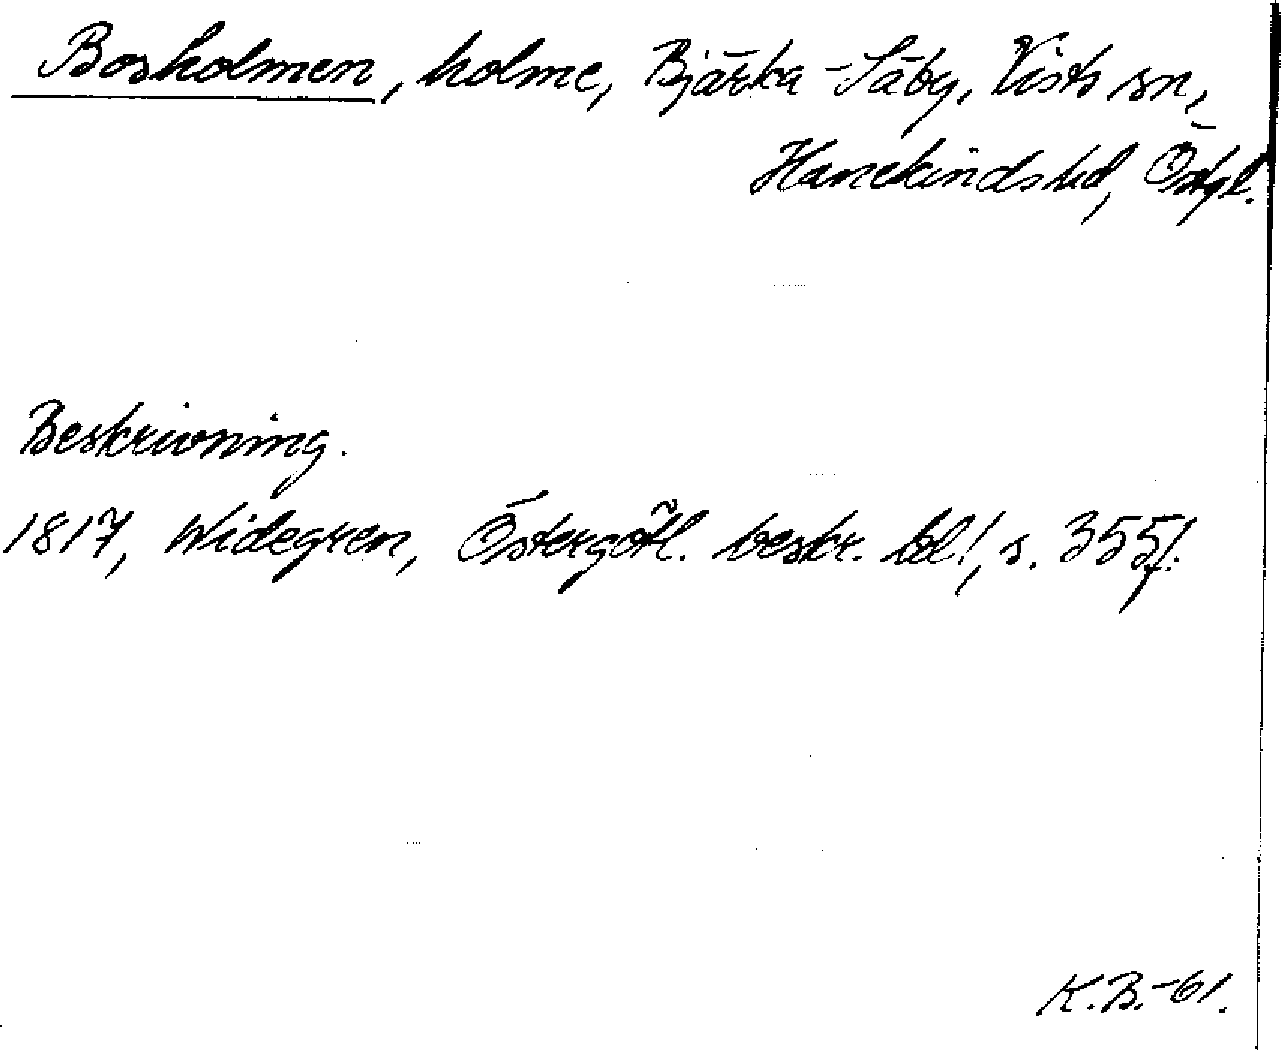 Bosholmen, holme, Bjärka-Säby, Vists sn,
Hanekinds hd, Östgl.
Beskrivning.
1817, Widegren, Östergötl. beskr. bd 1, s. 355 f.
K.B.-61.